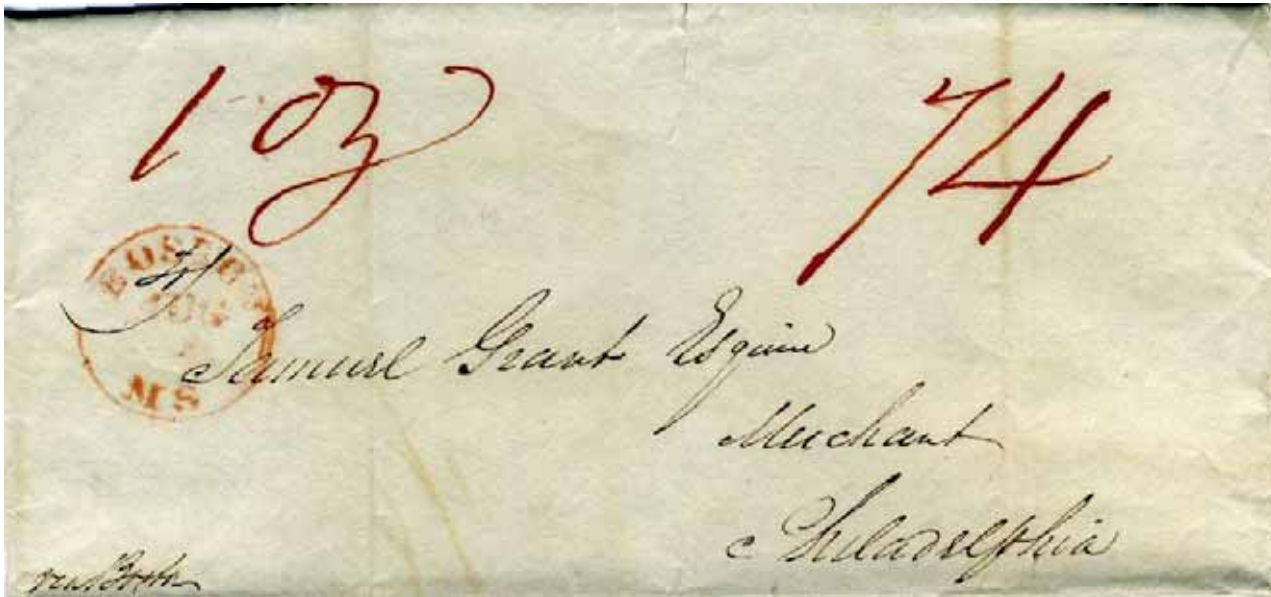 1 oz 74
BOSTON
AUG
MS
Samuel Grant Esquire
Merchant
Philadelphia
via Boston